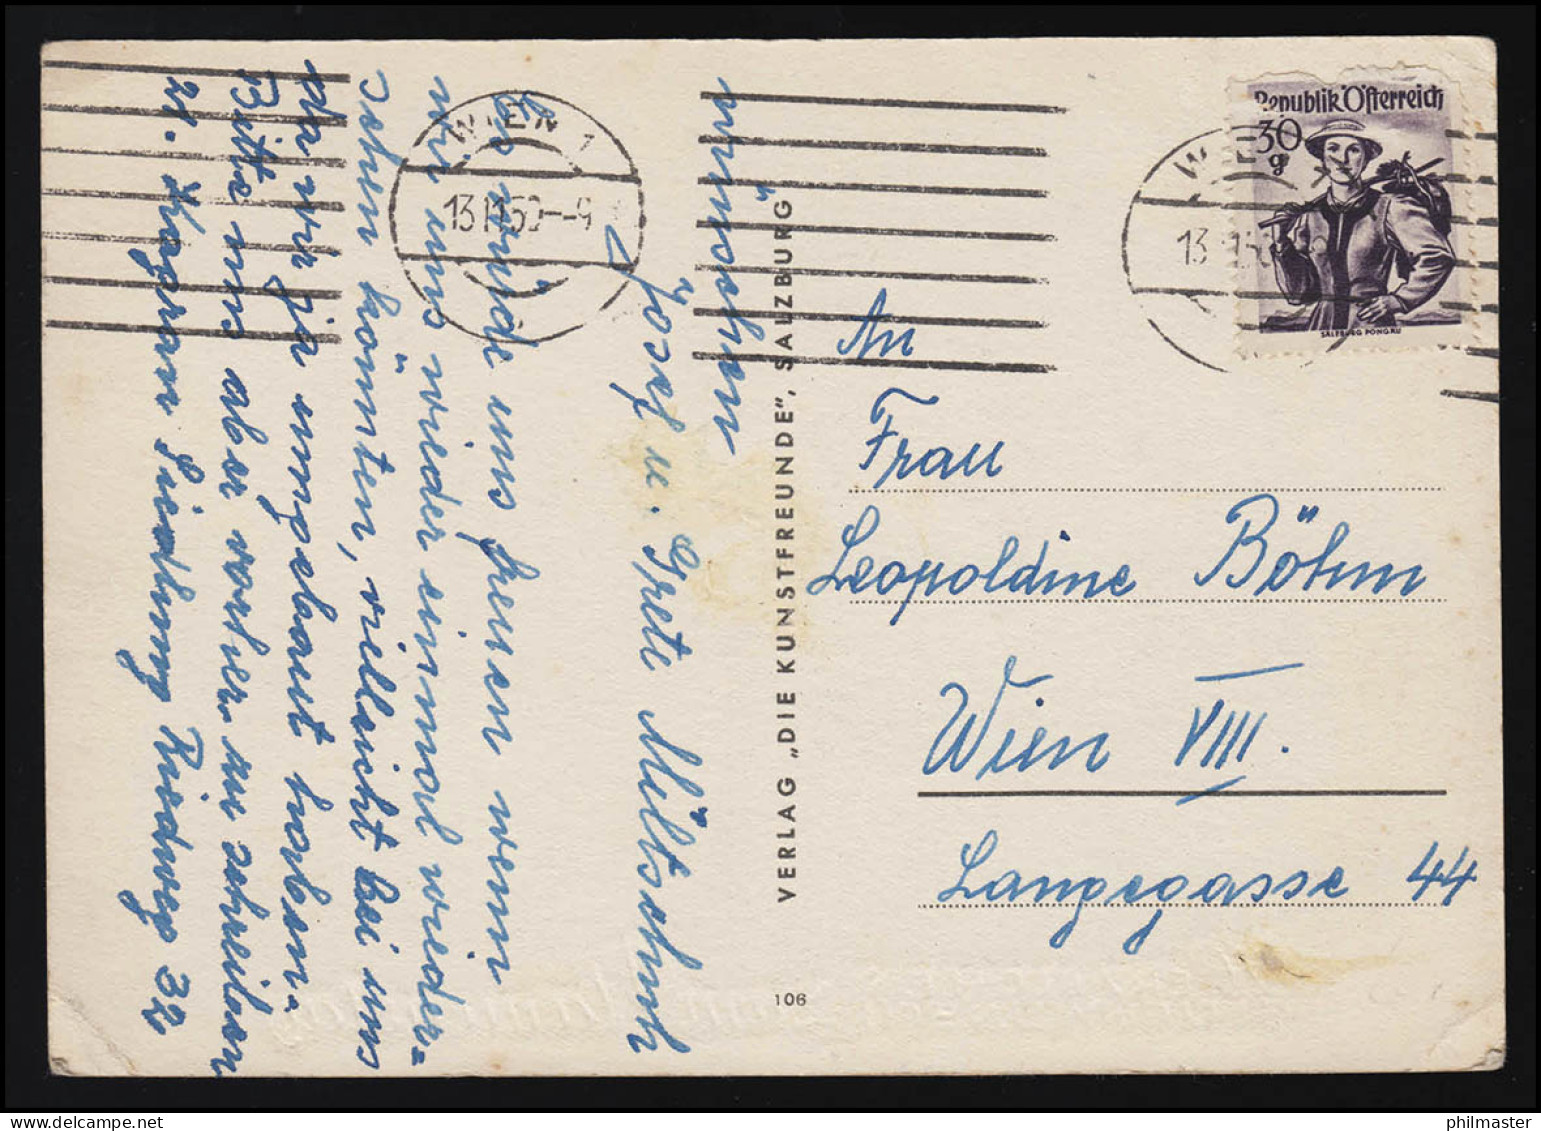 wünschen
Josef u. Grete Mültschuh
Es würde uns freuen wenn
wir uns wieder einmal wieder=
sehen könnten, villeicht bei uns
da wir ja umgebaut haben.
Bitte uns aber vorher zu schreiben
21. Kagran Siedlung Riedweg 32
WIEN 1
13.II.50--9
VERLAG „DIE KUNSTFREUNDE", SALZBURG
106
Republik Österreich
30
g
SALZBURG PONGAU
WIE
13
An
Frau
Leopoldine Böhm
Wien VIII.
Langegasse 44
philmaster